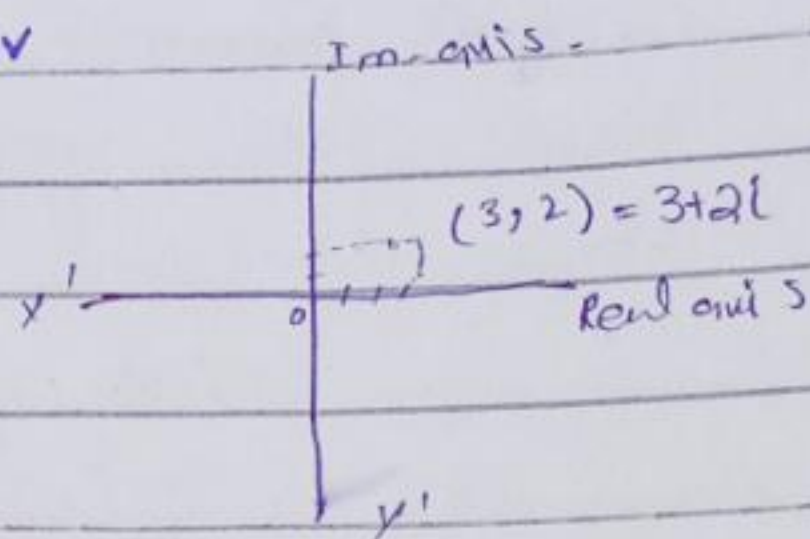 Im-axis-
(3, 2) = 3+2i
y'
0
Real axis
y'